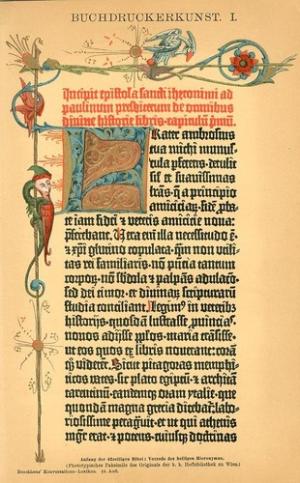 BUCHDRUCKERKUNST. I.
Incipit epistola sancti iheronimi ad
paulinum presbiterum de omnibus
diuine historie libris. capitulū pmū.
Frater ambrosius
tua michi munus-
cula pferens. detulit
sil et suauissimas
lrās. q̄ a principio
amiciciaꝝ. fidē pba-
te iam fidei et veteris amicicie noua:
pferebant. Vera eni illa necessitudo ē.
et xpi glutino copulata: qm non utili-
tas rei familiaris. nō pn̄cia tantum
corpoꝝ. nō sbdola et palpās adulacō.
sed dei timor. et diuinaꝝ scripturarū
studia conciliant. Legim⁹ in veterib⁹
historijs. quosdā lustrasse puincias.
nouos adijsse pplos. maria trāsisse.
ut eos quos ex libris nouerant: corā
q̄ viderēt. Sicut pitagoras memphi-
ticos vates. sic plato egiptū. et architā
tarentinū. eandemq̄ oram ytalie. que
quondā magna grecia dicebat̄: labo-
riosissime peragrauit: et ut qui athenis
mgr̄ erat. et potens. cuiusq̄ doctrinas
Anfang der 42zeiligen Bibel: Vorrede des heiligen Hieronymus.
(Phototypisches Faksimile des Originals der k. k. Hofbibliothek zu Wien.)
Brockhaus' Konversations-Lexikon. 14. Aufl.